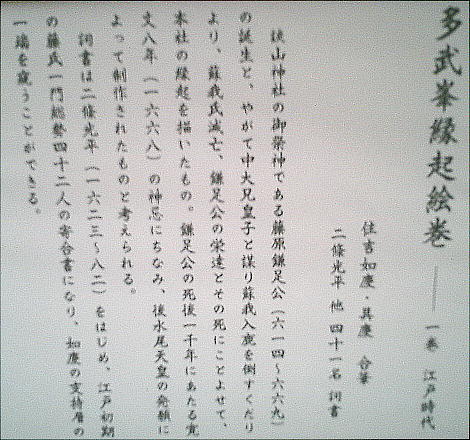 多武峯縁起絵巻 一巻 江戸時代
住吉如慶・具慶 合筆
二條光平 他 四十一名 詞書
談山神社の御祭神である藤原鎌足公（六一四～六六九）
の誕生と、やがて中大兄皇子と謀り蘇我入鹿を倒すくだり
より、蘇我氏滅亡、鎌足公の栄達とその死にことよせて、
本社の縁起を描いたもの。鎌足公の死後一千年にあたる寛
文八年（一六六八）の神忌にちなみ、後水尾天皇の発願に
よって制作されたものと考えられる。
詞書は二條光平（一六二三～八二）をはじめ、江戸初期
の藤氏一門総勢四十二人の寄合書になり、如慶の支持層の
一端を窺うことができる。